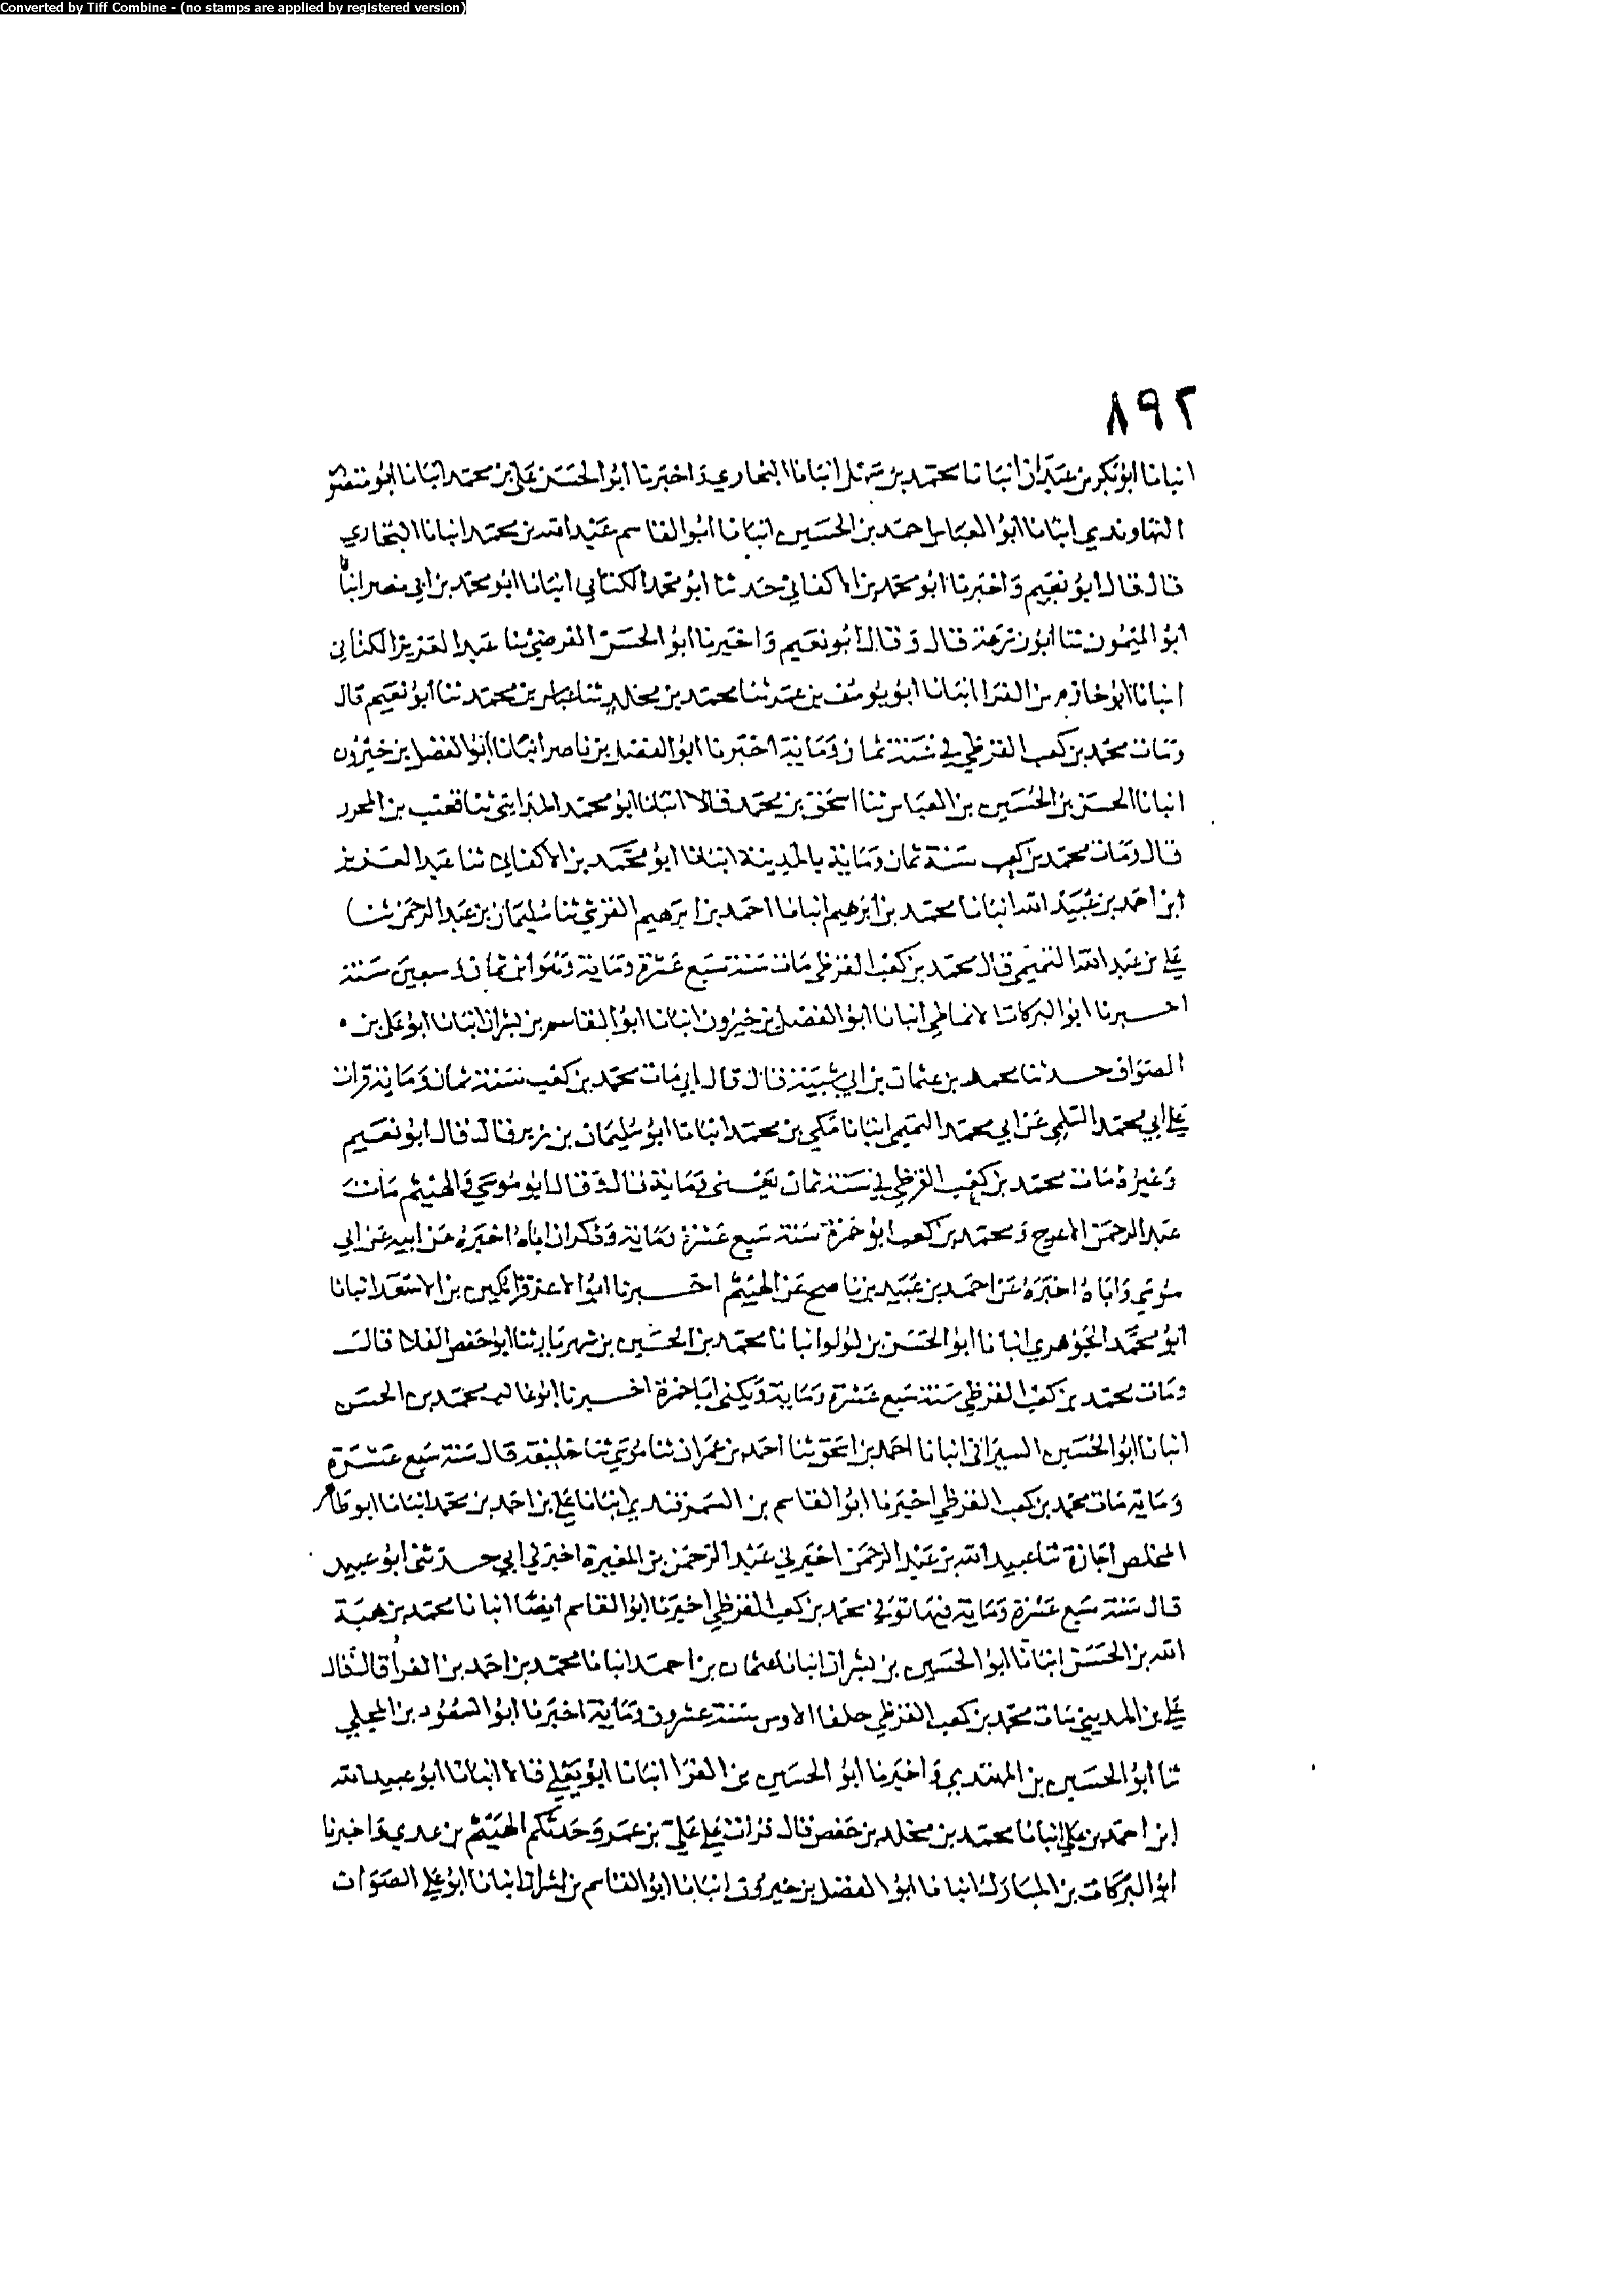 Converted by Tiff Combine - (no stamps are applied by registered version)
٨٩٢
انبانا ابو بكر بن عبدان انبانا محمد بن سهل انبانا البخاري واخبرنا ابو الحسن علي بن محمد انبانا ابو منصور
النهاوندي انبانا ابو العباس احمد بن الحسين انبانا ابو القاسم عبد الله بن محمد انبانا البخاري
قال قال ابو نعيم واخبرنا ابو محمد بن الاكفاني حدثنا ابو محمد الكتاني انبانا ابو محمد بن ابي نصر انبا
ابو الميمون ثنا ابو زرعة قال وقال ابو نعيم واخبرنا ابو الحسن الفرضي ثنا عبد العزيز الكتاني
انبانا ابو خازم بن الفرا انبانا ابو يوسف بن عمر ثنا محمد بن مخلد ثنا عباس بن محمد ثنا ابو نعيم قال
ومات محمد بن كعب القرظي في سنة ثمان ومائة اخبرنا ابو الفضل بن ناصر انبانا ابو الفضل بن خيرون
انبانا الحسن بن الحسين بن العباس ثنا اسحق بن محمد قالا انبانا ابو محمد المدايني ثنا قعنب بن المحرر
قال ومات محمد بن كعب سنة ثمان ومائة بالمدينة انبانا ابو محمد بن الاكفاني ثنا عبد العزيز
ابن احمد بن عبيد الله انبانا محمد بن ابرهيم انبانا احمد بن ابرهيم القرشي ثنا سليمان بن عبد الرحمن ثنا
علي بن عبد الله التميمي قال محمد بن كعب القرظي مات سنة سبع عشرة ومائة وهو ابن ثمان وسبعين سنة
اخبرنا ابو البركات الانماطي انبانا ابو الفضل بن خيرون انبانا ابو القاسم بن بشران انبانا ابو علي بن
الصواف حدثنا محمد بن عثمان بن ابي شيبة قال قال ابي مات محمد بن كعب سنة ثمان ومائة قرات
علي ابي محمد السلمي عن ابي محمد التميمي انبانا مكي بن محمد انبانا ابو سليمان بن زبر قال قال ابو نعيم
وغيره مات محمد بن كعب القرظي في سنة ثمان يعني ومائة قال وقال ابو موسى والهيثم مات
عبد الرحمن الاعرج ومحمد بن كعب ابو حمزة سنة سبع عشرة ومائة وذكر ان اباه اخبره عن ابيه عن ابي
موسى واباه اخبره عن احمد بن عبيد بن ناصح عن الهيثم اخبرنا ابو الاعز قراتكين بن الاسعد انبانا
ابو محمد الجوهري انبانا ابو الحسن بن لولو انبانا محمد بن الحسين بن شهريار ثنا ابو حفص الفلا قال
ومات محمد بن كعب القرظي سنة سبع عشرة ومائة ويكنى ابا حمزة اخبرنا ابو غالب محمد بن الحسن
انبانا ابو الحسين السيرافي انبانا احمد بن اسحق ثنا احمد بن عمران ثنا موسى ثنا خليفة قال سنة سبع عشرة
ومائة مات محمد بن كعب القرظي اخبرنا ابو القاسم بن السمرقندي انبانا علي بن احمد بن محمد انبانا ابو طاهر
المخلص اجازة ثنا عبيد الله بن عبد الرحمن اخبرني عبد الرحمن بن المغيرة اخبرني ابي حدثني ابو عبيد
قال سنة سبع عشرة ومائة فيها توفي محمد بن كعب القرظي اخبرنا ابو القاسم ايضا انبانا محمد بن هبة
الله بن الحسن انبانا ابو الحسين بن بشران انبانا عثمان بن احمد انبانا محمد بن احمد بن الفرا قال قال
علي بن المديني مات محمد بن كعب القرظي حلفا الاوس سنة عشرون ومائة اخبرنا ابو السعود بن المجلي
ثنا ابو الحسين بن المهتدي واخبرنا ابو الحسين بن الفرا انبانا ابو يعلى قالا انبانا ابو عبيد الله
ابن احمد بن علي انبانا محمد بن مخلد بن حفص قال قرات على علي بن عمر وحدثكم الهيثم بن عدي واخبرنا
ابو البركات بن المبارك انبانا ابو الفضل بن خيرون انبانا ابو القاسم بن بشران انبانا ابو علي الصواف